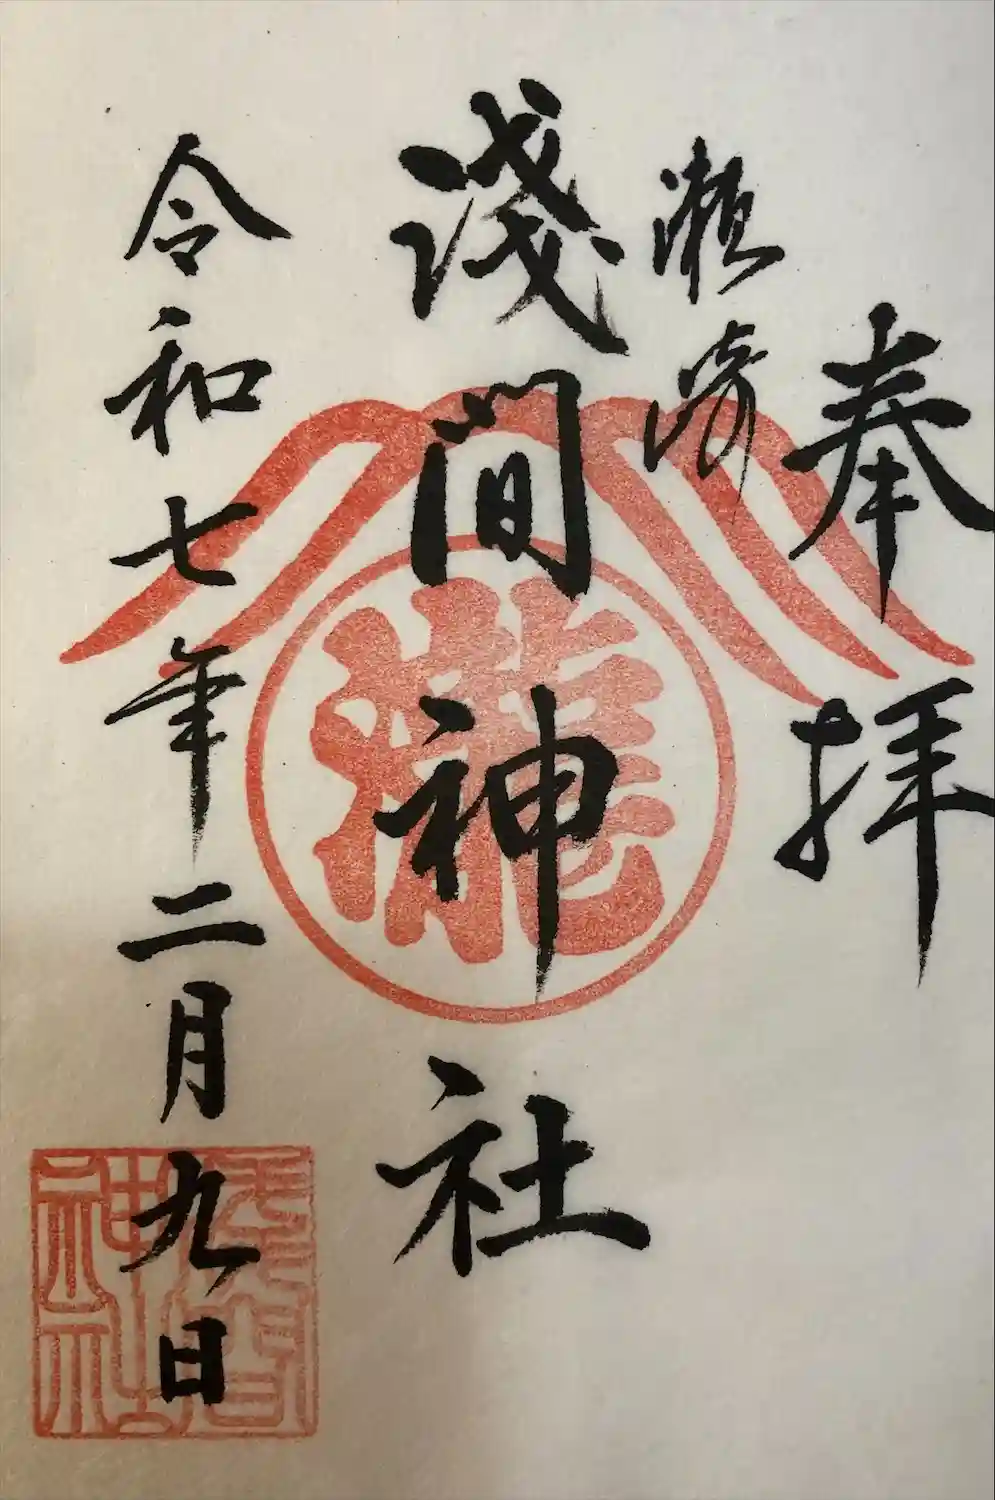 奉拝
瀬崎
淺間神社
瀧
令和七年二月九日
淺間
神社